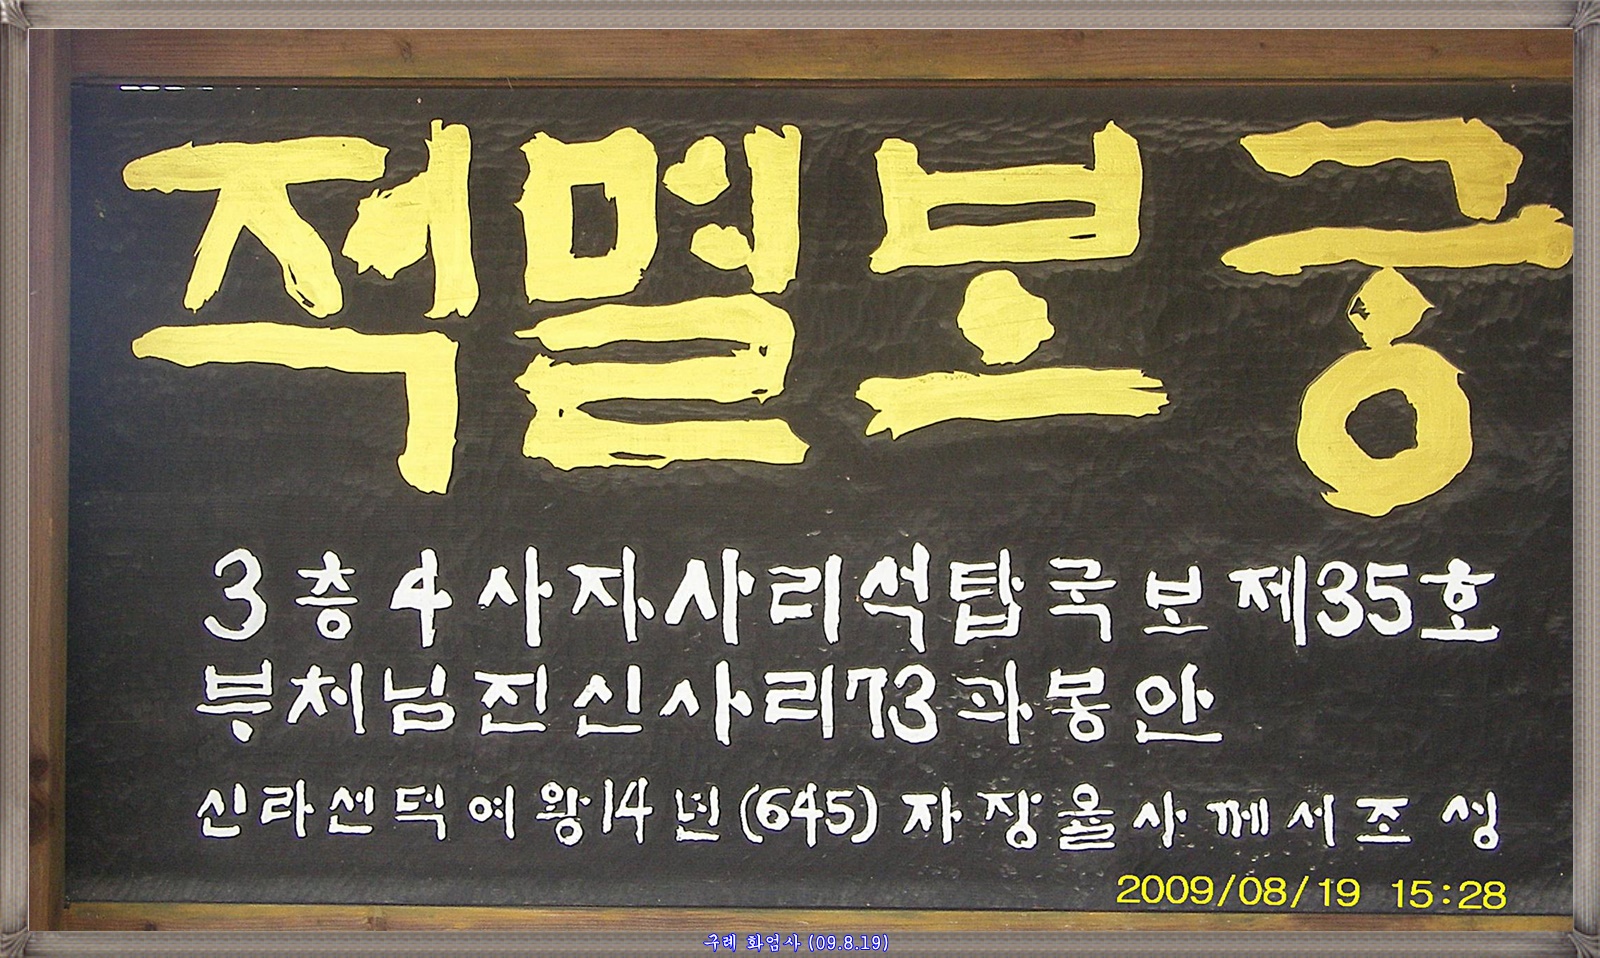 적멸보궁
3층4사자사리석탑국보제35호
부처님진신사리73과봉안
신라선덕여왕14년(645)자장율사께서조성
2009/08/19 15:28
구례 화엄사 (09.8.19)